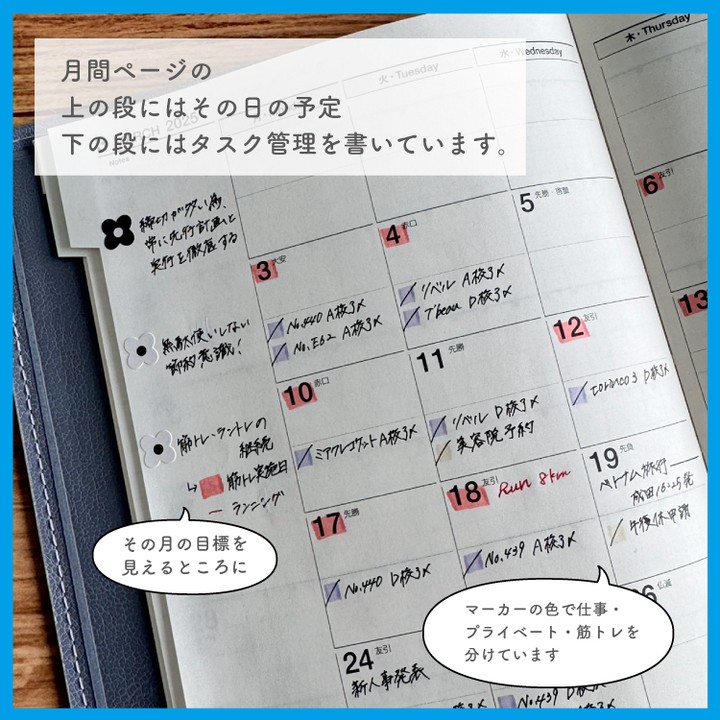 月間ページの
上の段にはその日の予定
下の段にはタスク管理を書いています。
MARCH 2025
Notes
火・Tuesday
水・Wednesday
木・Thursday
締切が多い為、
常に先行計画と
実行を徹底する
無駄使いしない
節約意識!
筋トレ・ランドレの
継続
↳ 筋トレ実施日
ランニング
3 大安
No.440 A校〆
No.E62 A校〆
4 赤口
リベル A校〆
T'beau D校〆
5 先勝・啓蟄
6 友引
10 赤口
ミアクレコケット A校〆
11 先勝
リベル D校〆
美容院予約
12 友引
torinco3 D校〆
13
17 先勝
No.440 D校〆
18 友引 Run 8km
No.439 A校〆
19 先負
ベトナム旅行
成田16:25発
午後休申請
24 友引
新人事発表
No.439 D校〆
26 仏滅
その月の目標を
見えるところに
マーカーの色で仕事・
プライベート・筋トレを
分けています